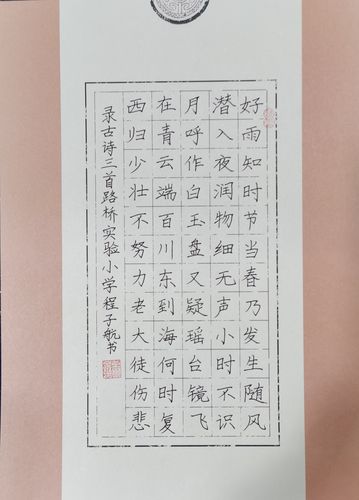 好雨知时节当春乃发生随风
潜入夜润物细无声小时不识
月呼作白玉盘又疑瑶台镜飞
在青云端百川东到海何时复
西归少壮不努力老大徒伤悲
录古诗三首路桥实验小学程子航书